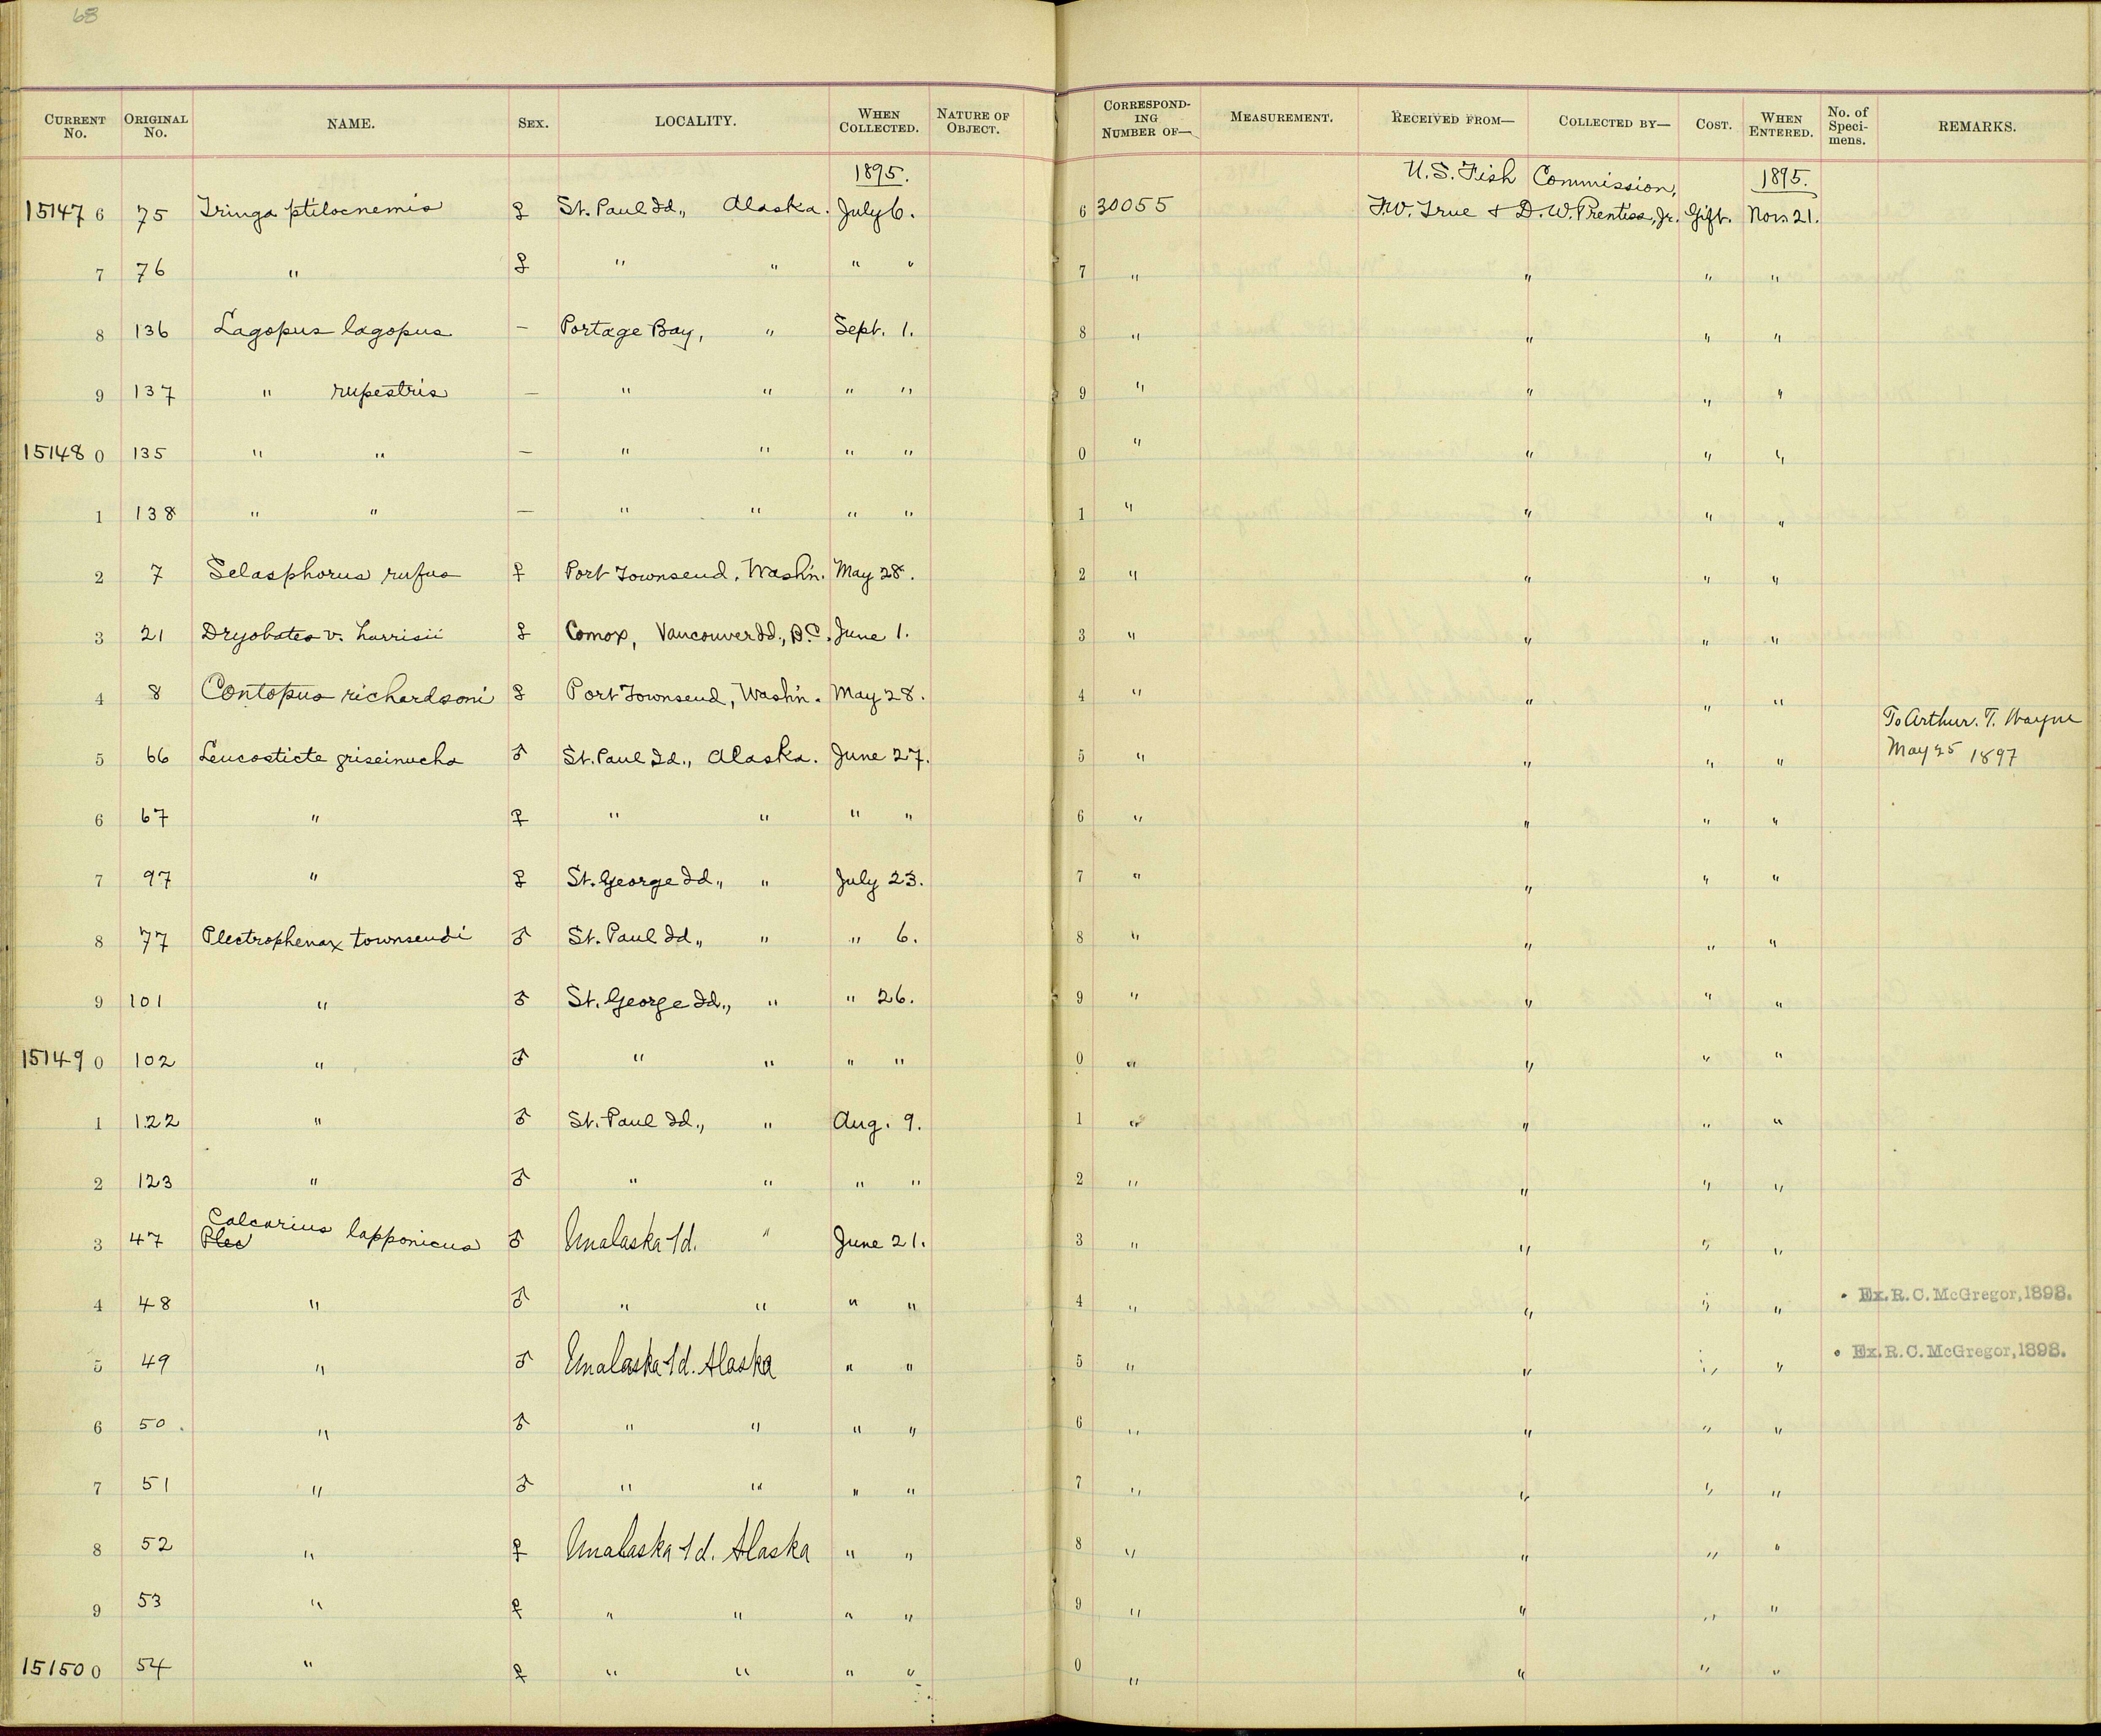 68
CURRENT No. ORIGINAL No. NAME. SEX. LOCALITY. WHEN COLLECTED. NATURE OF OBJECT. CORRESPONDING NUMBER OF— MEASUREMENT. RECEIVED FROM— COLLECTED BY— COST. WHEN ENTERED. No. of Specimens. REMARKS.
1895. U.S. Fish Commission, 1895.
15147 6 75 Tringa ptilocnemis ♀ St. Paul Id., Alaska. July 6. 6 30055 F.W. True & D.W. Prentiss, Jr. Gift. Nov. 21.
7 76 " ♀ " " " " 7 " " " "
8 136 Lagopus lagopus — Portage Bay, " Sept. 1. 8 " " " "
9 137 " rupestris — " " " " 9 " " " "
15148 0 135 " " — " " " " 0 " " " "
1 138 " " — " " " " 1 " " " "
2 7 Selasphorus rufus ♀ Port Townsend, Wash'n. May 28. 2 " " " "
3 21 Dryobates v. harrisii ♀ Comox, Vancouver Id., B.C. June 1. 3 " " " "
4 8 Contopus richardsoni ♀ Port Townsend, Wash'n. May 28. 4 " " " "
To Arthur. T. Wayne
5 66 Leucosticte griseinucha ♂ St. Paul Id., Alaska. June 27. 5 " " " " May 25 1897
6 67 " ♀ " " " " 6 " " " "
7 97 " ♀ St. George Id., " July 23. 7 " " " "
8 77 Plectrophenax townsendi ♂ St. Paul Id., " " 6. 8 " " " "
9 101 " ♂ St. George Id., " " 26. 9 " " " "
15149 0 102 " ♂ " " " " 0 " " " "
1 122 " ♂ St. Paul Id., " Aug. 9. 1 " " " "
2 123 " ♂ " " " " 2 " " " "
Calcarius
3 47 Plec lapponicus ♂ Unalaska Id. " June 21. 3 " " " "
4 48 " ♂ " " " " 4 " " " " Ex. R. C. McGregor, 1898.
5 49 " ♂ Unalaska Id. Alaska " " 5 " " " " Ex. R. C. McGregor, 1898.
6 50. " ♂ " " " " 6 " " " "
7 51 " ♂ " " " " 7 " " " "
8 52 " ♀ Unalaska Id. Alaska " " 8 " " " "
9 53 " ♀ " " " " 9 " " " "
15150 0 54 " ♀ " " " " 0 " " " "